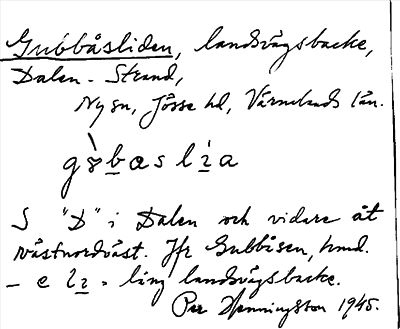 Gubbåsliden, landsvägsbacke,
Dalen - Strand,
Ny sn, Jösse hd, Värmlands län.
g8̀bas lìa
S "D" i Dalen och vidare åt
västnordväst. Jfr Gubbåsen, hmd.
– e lì = lång landsvägsbacke.
Per Henningsson 1945.